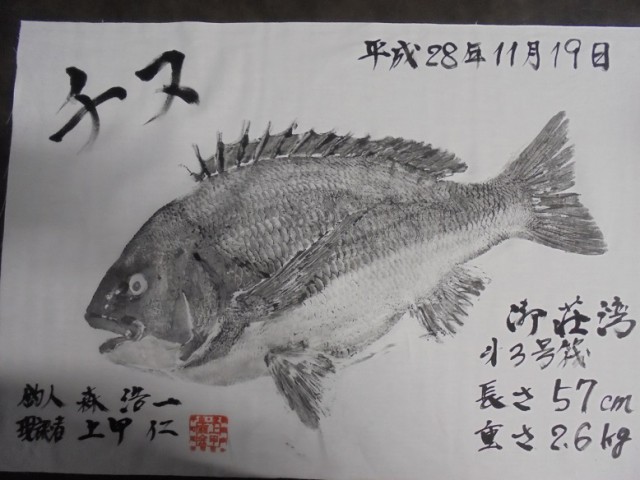 平成28年11月19日
チヌ
御荘湾
3号筏
長さ57cm
重さ2.6kg
釣人 森 浩一
現認者 上甲 仁